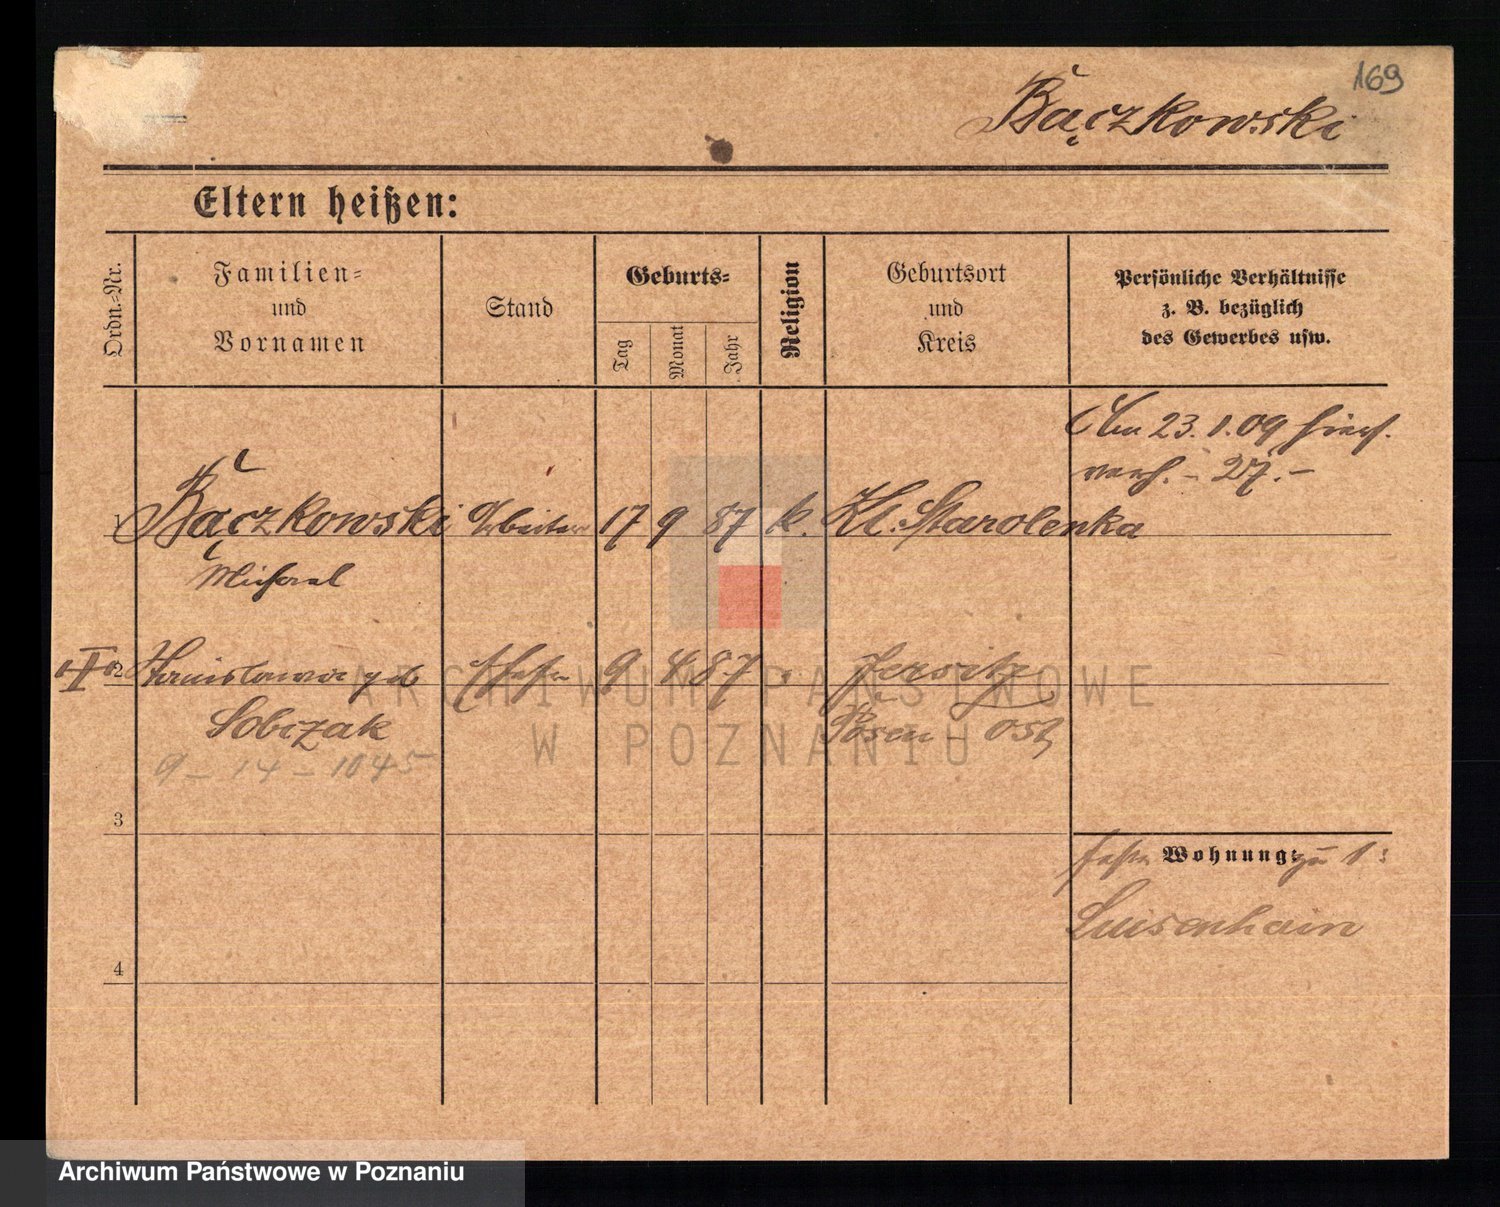 169
Bączkowski
Eltern heißen:
Ordn.-Nr.
Familien-
und
Vornamen
Stand
Geburts-
Tag
Monat
Jahr
Religion
Geburtsort
und
Kreis
Persönliche Verhältnisse
z. B. bezüglich
des Gewerbes usw.
Am 23.1.09 hier
verh. - 27.-
1 Bączkowski Arbeiter 17 9 87 k. Kl. Starolenka
Michael
I 2 Stanislawa geb 9 4 87 " Jerzitz
Sobczak Posen - Ost
9 - 14 - 1045
3
Wohnung: zu 1:
Luisenhain
4
ARCHIWUM PAŃSTWOWE
W POZNANIU
Archiwum Państwowe w Poznaniu